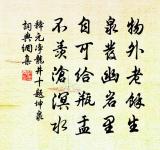 物外老餘生
泉發幽岩里
自可給瓶盂
不羨滄溟水
釋元淨龍井十題坤泉
詞典網集